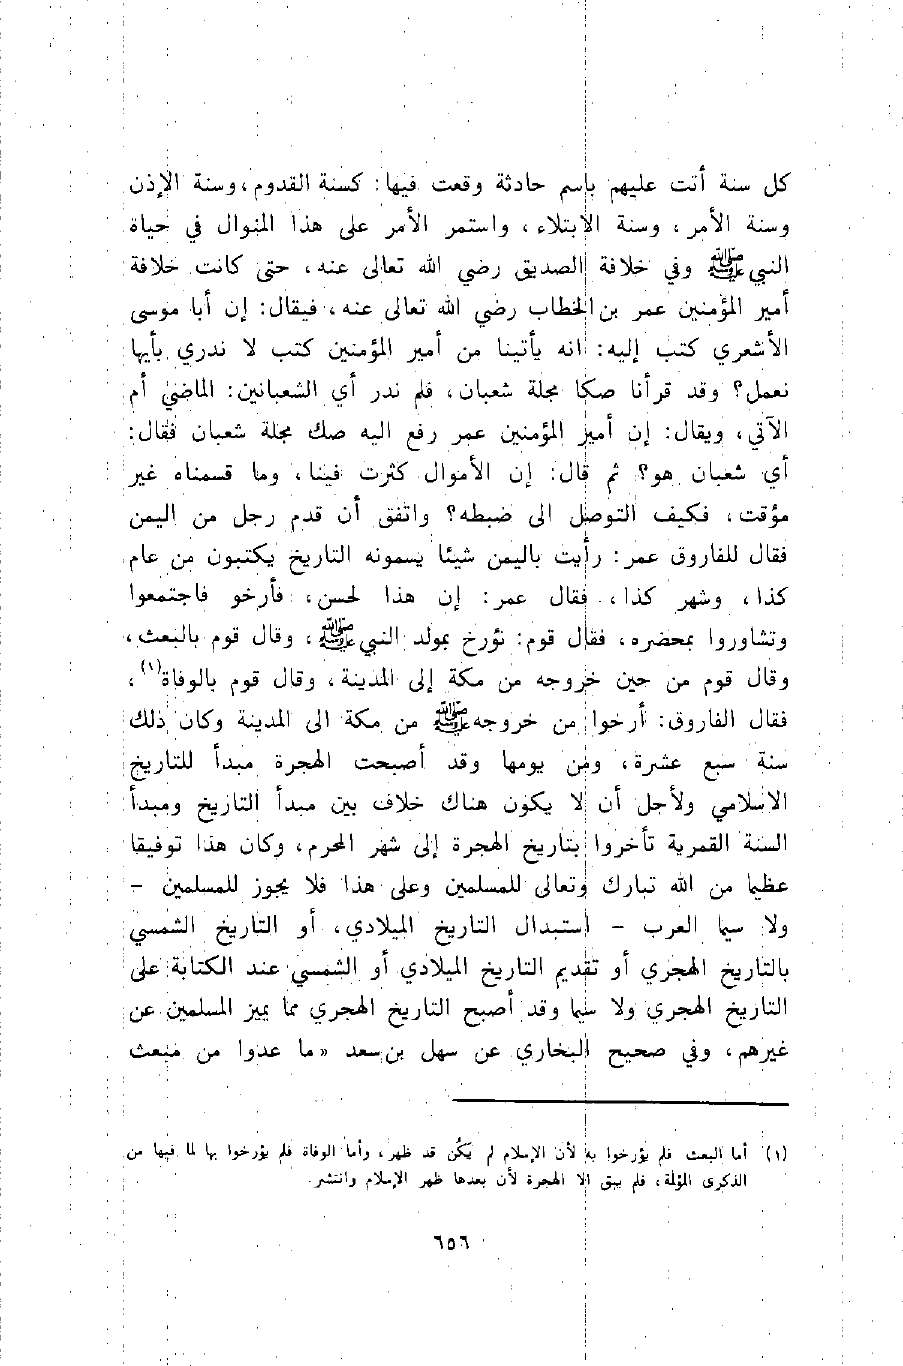 كل سنة أتت عليهم بإسم حادثة وقعت فيها: كسنة القدوم، وسنة الإذن
وسنة الأمر، وسنة الابتلاء، واستمر الأمر على هذا المنوال في حياة
النبي ﷺ وفي خلافة الصديق رضي الله تعالى عنه، حتى كانت خلافة
أمير المؤمنين عمر بن الخطاب رضي الله تعالى عنه، فيقال: إن أبا موسى
الأشعري كتب إليه: انه يأتينا من أمير المؤمنين كتب لا ندري بأيها
نعمل؟ وقد قرأنا صكا مجلة شعبان، فلم ندر أي الشعبانين: الماضي أم
الآتي، ويقال: إن أمير المؤمنين عمر رفع اليه صك مجلة شعبان فقال:
أي شعبان هو؟ ثم قال: إن الأموال كثرت فينا، وما قسمناه غير
مؤقت، فكيف التوصل الى ضبطه؟ واتفق أن قدم رجل من اليمن
فقال للفاروق عمر: رأيت باليمن شيئا يسمونه التاريخ يكتبون من عام
كذا، وشهر كذا، فقال عمر: إن هذا لحسن، فأرخو فاجتمعوا
وتشاوروا بمحضره، فقال قوم: نؤرخ بمولد النبي ﷺ، وقال قوم بالبعث،
وقال قوم من حين خروجه من مكة إلى المدينة، وقال قوم بالوفاة(١)،
فقال الفاروق: أرخوا من خروجه ﷺ من مكة الى المدينة وكان ذلك
سنة سبع عشرة، ومن يومها وقد أصبحت الهجرة مبدأ للتاريخ
الاسلامي ولأجل أن لا يكون هناك خلاف بين مبدأ التاريخ ومبدأ
السنة القمرية تأخروا بتاريخ الهجرة إلى شهر المحرم، وكان هذا توفيقا
عظيما من الله تبارك وتعالى للمسلمين وعلى هذا فلا يجوز للمسلمين -
ولا سيما العرب - استبدال التاريخ الميلادي، أو التاريخ الشمسي
بالتاريخ الهجري أو تقديم التاريخ الميلادي أو الشمسي عند الكتابة على
التاريخ الهجري ولا سيما وقد أصبح التاريخ الهجري مما يميز المسلمين عن
غيرهم، وفي صحيح البخاري عن سهل بن سعد «ما عدوا من مبعث
(١) أما البعث فلم يؤرخوا به لأن الإسلام لم يكُن قد ظهر، وأما الوفاة فلم يؤرخوا بها لما فيها من
الذكرى المؤلمة، فلم يبق الا الهجرة لأن بعدها ظهر الإسلام وانتشر.
٦٥٦